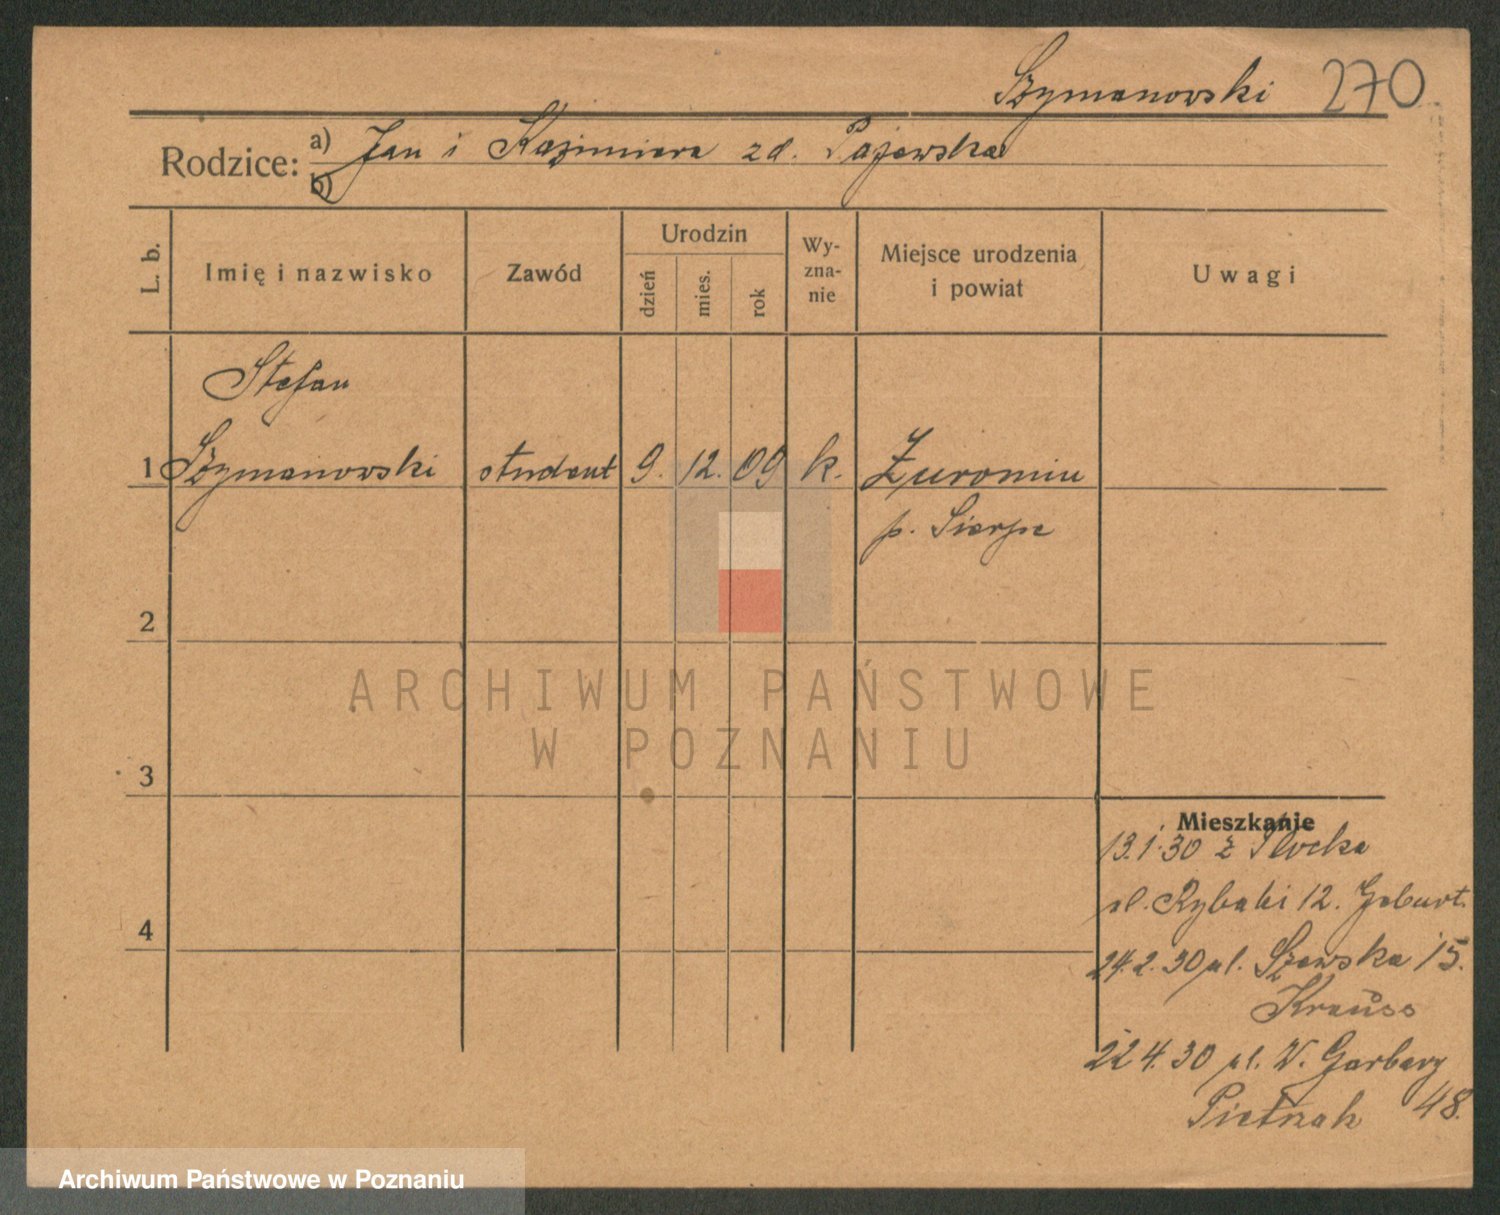 Szymanowski 270
Rodzice: a) Jan i Kazimiera zd. Pajewska
b)
L. b.
Imię i nazwisko
Zawód
Urodzin
dzień
mies.
rok
Wy-
zna-
nie
Miejsce urodzenia
i powiat
Uwagi
Stefan
1 Szymanowski student 9. 12. 09 k. Żuromin
p. Sierpc
2
3
4
Mieszkanie
13.1.30 z Płocka
ul. Rybaki 12. Geburt.
24.2.30 ul. Szewska 15.
Krauss
22 4.30 ul. W. Garbary
Pietrzak 48.
ARCHIWUM PAŃSTWOWE
W POZNANIU
Archiwum Państwowe w Poznaniu